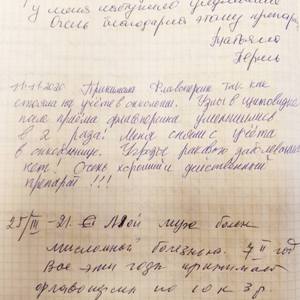 у меня наступило улучшение
Очень благодарна этому препар.
Татьяна
Пермь
11.11.2020 Принимала Флавоперин так как
стояла на учёте в онкологии. Узлы в щитовидке
после приёма флавоперина уменьшились
в 2 раза! Меня сняли с учёта
в онкологии. Угрозы раково заболевания
нет! Очень хороший и действенный
препарат!!!
25/III-21. Мой муж болен
болезнью. 7 год
Все эти годы принимает
по 10 к 3 р.